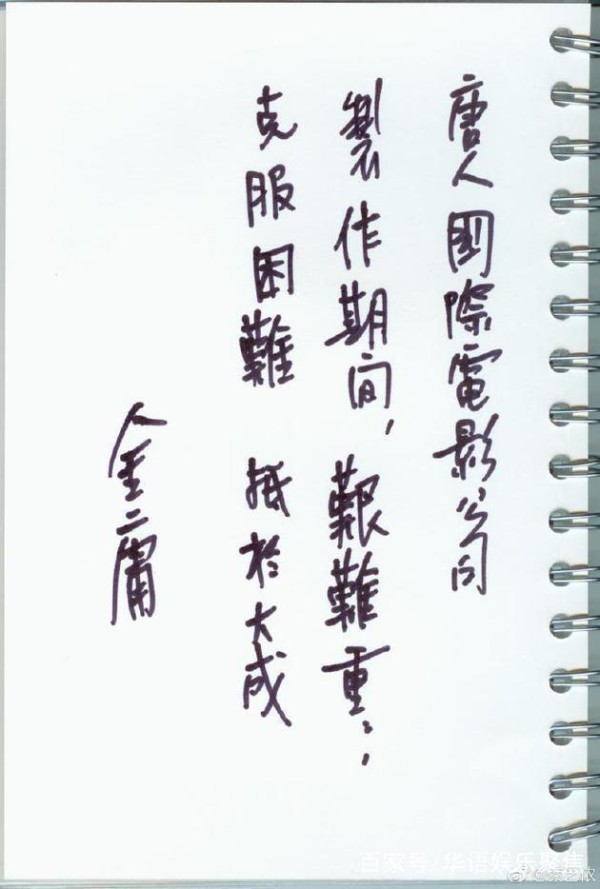 唐人國際電影公司
製作期间，艱難重〻，
克服困難 抵於大成
金庸
百家号/华语娱乐聚焦